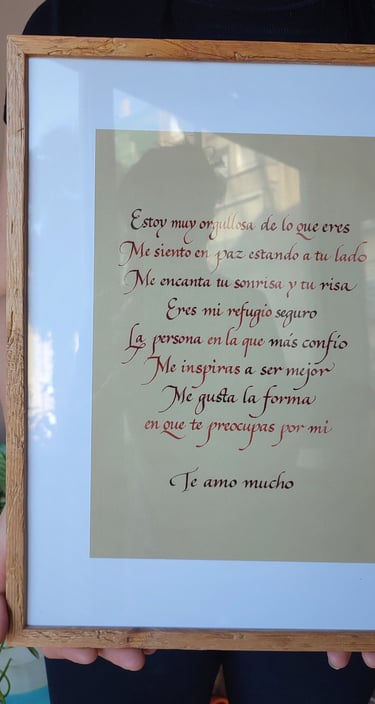 Estoy muy orgullosa de lo que eres
Me siento en paz estando a tu lado
Me encanta tu sonrisa y tu risa
Eres mi refugio seguro
La persona en la que más confío
Me inspiras a ser mejor
Me gusta la forma
en que te preocupas por mi
Te amo mucho